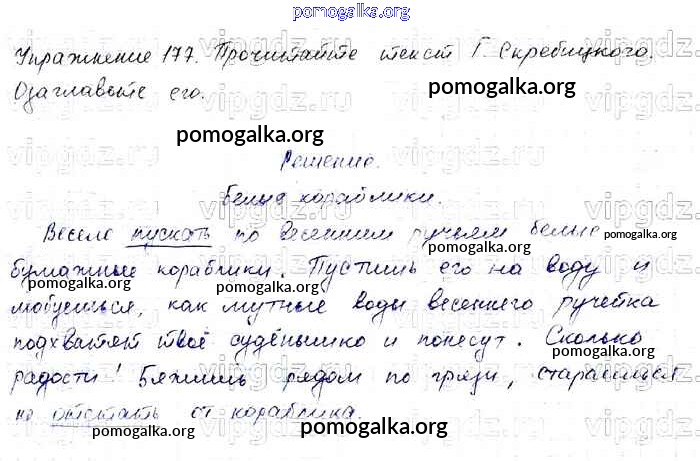 pomogalka.org
Упражнение 177. Прочитайте текст Г. Скребицкого.
Озаглавьте его.
pomogalka.org
pomogalka.org
Решение.
Белые кораблики.
Весело пускать по весенним ручьям белые
pomogalka.org
pomogalka.org
бумажные кораблики. Пустишь его на воду и
pomogalka.org
любуешься, как мутные воды весеннего ручейка
подхватят твоё судёнышко и понесут. Сколько
pomogalka.org
радости! Бежишь рядом по грязи, стараешься
pomogalka.org
не отстать от кораблика.
pomogalka.org
pomogalka.org